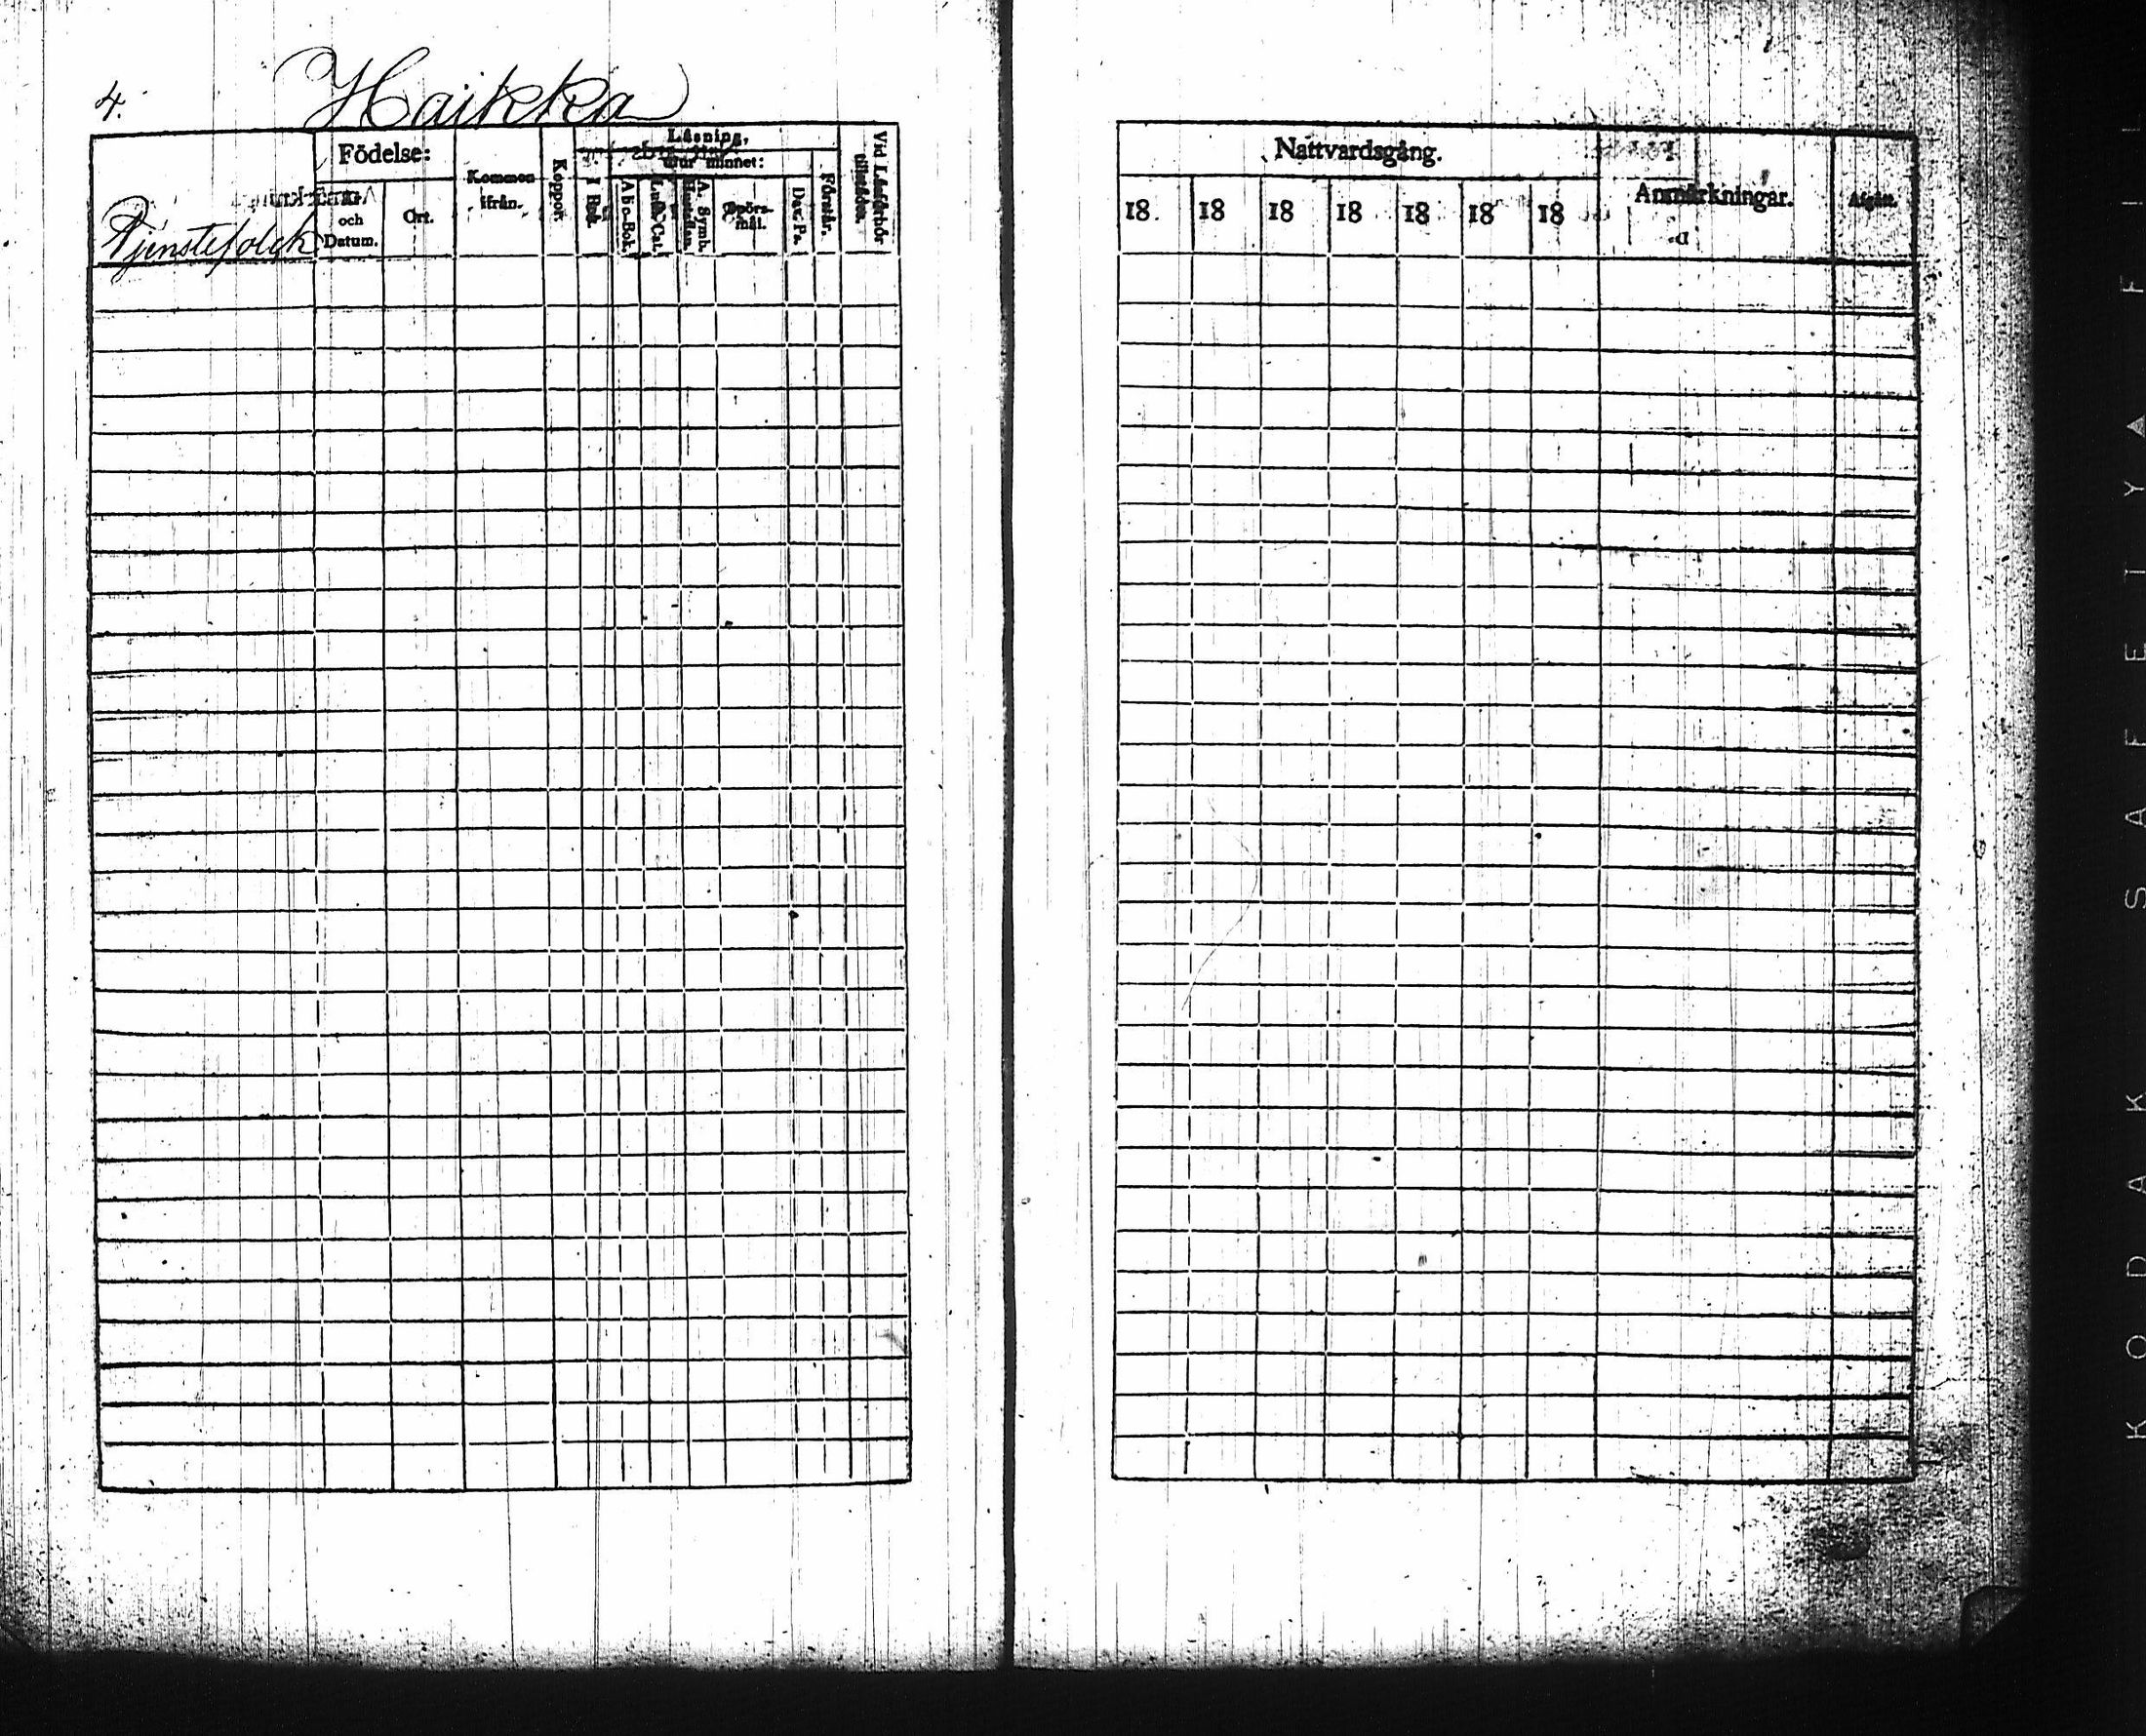 4.
Haikka
Tjenstefolck
Födelse:
och
Datum.
Ort.
Kommen
ifrån.
Koppor.
Läsning,
utur minnet:
I Bok.
Abc-Bok.
Luth. Cat.
A. Symb.
Spörs-
mål.
Dav. Ps.
Förstår.
Vid Läsförhör
tillstädes.
Nattvardsgång.
18 18 18 18 18 18 18
Anmärkningar.
Afgått.
KODAK SAFETY ▲ FIL